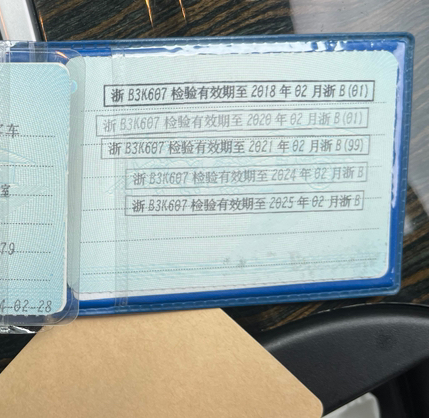 浙 B3K607 检验有效期至 2018 年 02 月浙 B(01)
浙 B3K607 检验有效期至 2020 年 02 月浙 B(01)
浙 B3K607 检验有效期至 2021 年 02 月浙 B(99)
浙 B3K607 检验有效期至 2024 年 02 月浙 B
浙 B3K607 检验有效期至 2025 年 02 月浙 B
车
室
79
4-02-28